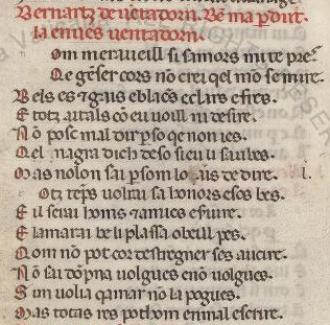 Bernartz de uentadorn. Be ma perdut
la en ues uentadorn.
Om meraueill si samors mi te pres
Qe genser cors no crei qel mon se mire.
Bels es e grais e blancs e clars e fres.
E totz aitals co eu uoill ni desire.
No posc mal dir per so qe non i es.
Qel magra dich de so sieu li saubes.
Mas nolon sai per som lo de dire. i.
Otz temps uolrai sa honors e sos bes.
E il serai homs e amics e seruire.
E lamarai be li plassa o beill pes.
Qom no pot cor destregner ses aucire.
No sai dompna uolgues e no uolgues.
Si m uolia qamar no la pogues.
Mas totas res pot hom en mal escrire.